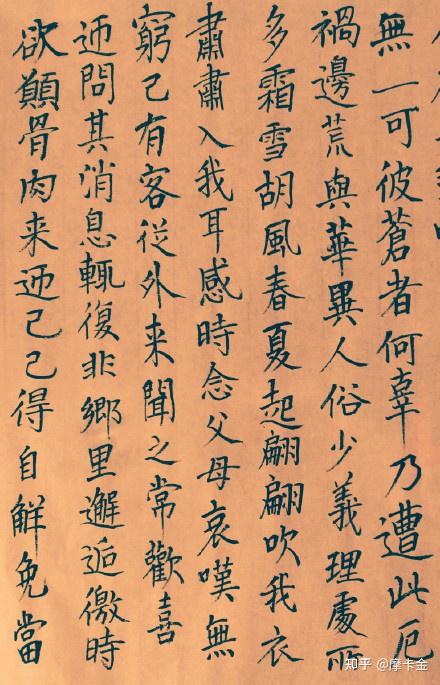 無一可彼蒼者何辜乃遭此厄
禍邊荒與華異人俗少義理處所
多霜雪胡風春夏起翩翩吹我衣
肅肅入我耳感時念父母哀嘆無
窮己有客從外來聞之常歡喜
迎問其消息輒復非鄉里邂逅徼時
欲顛骨肉来迎己己得自解免當
知乎 @摩卡金